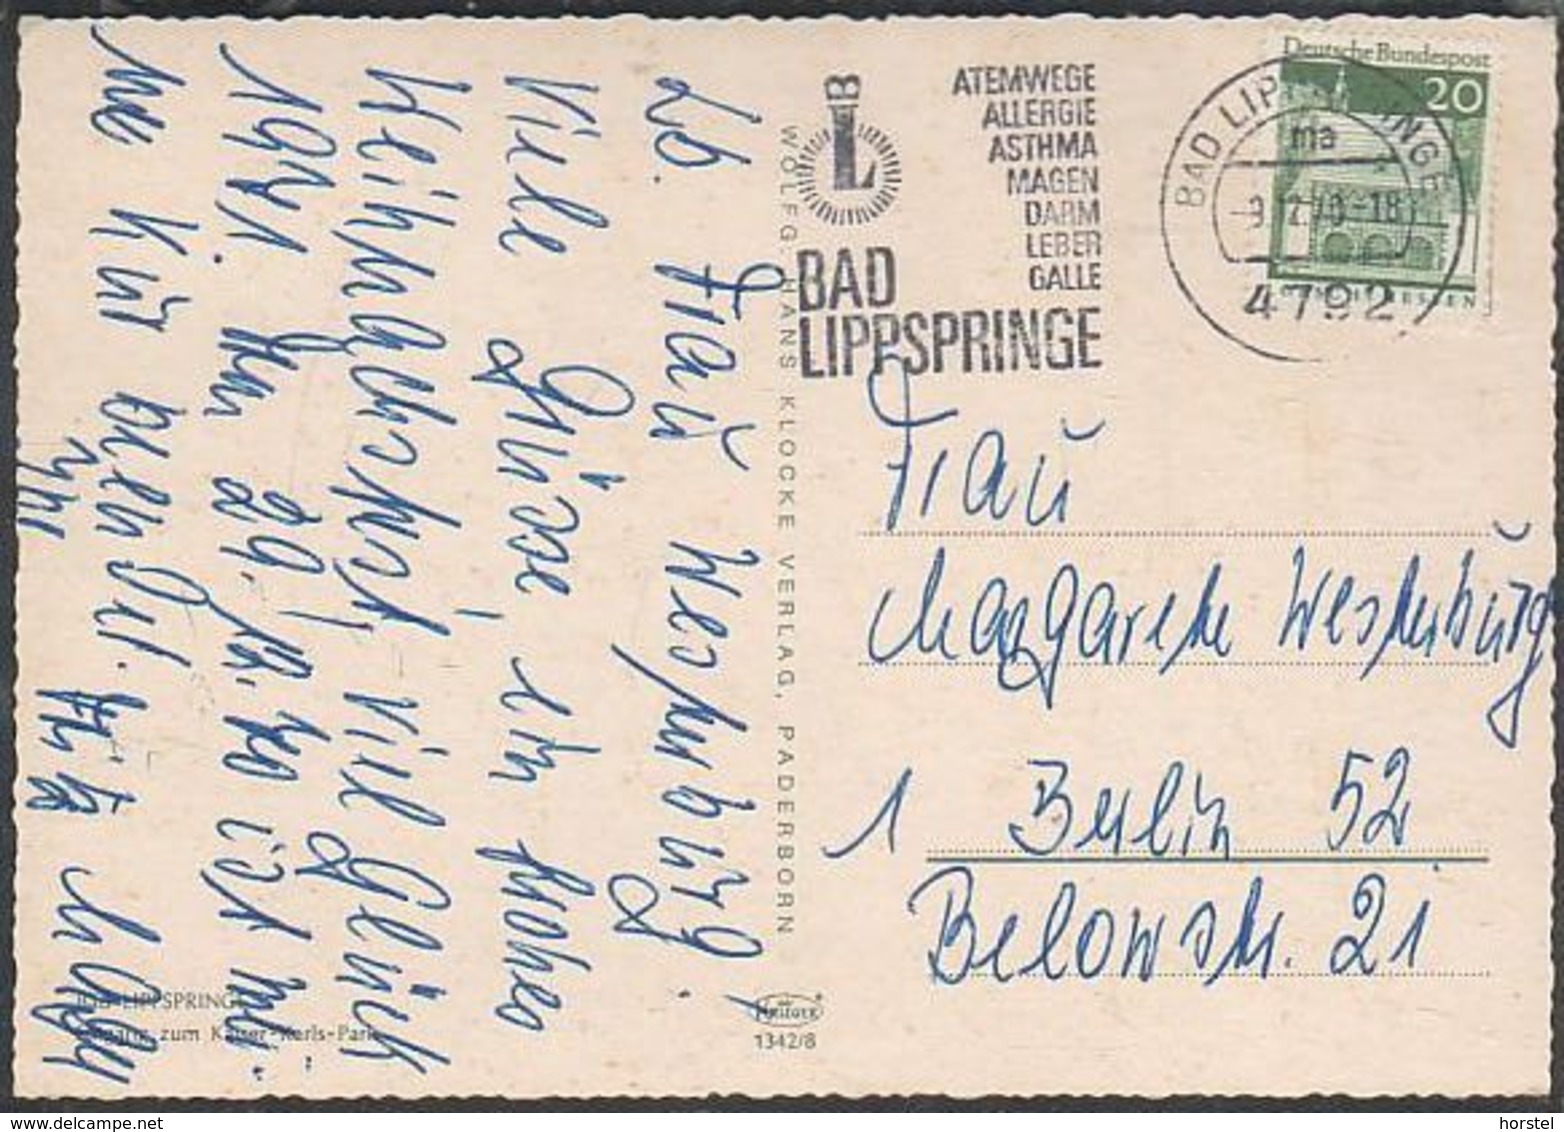 Lb. Frau Westerburg,
Viele Grüsse, ein frohes
Weihnachtsfest, viel Glück
1971. Am 29. 12. 70 ist
meine Kur beendet.
Ihre
WOLFGANG HANS KLOCKE VERLAG, PADERBORN
BAD LIPPSPRINGE
Eingang zum Kaiser-Karls-Park
KRÜGER
1342/8
LB
ATEMWEGE
ALLERGIE
ASTHMA
MAGEN
DARM
LEBER
GALLE
BAD
LIPPSPRINGE
BAD LIPPSPRINGE
ma
-18
4792
Deutsche Bundespost
20
Frau
Margarete Westerburg
1 Berlin 52
Belowstr. 21
horstel